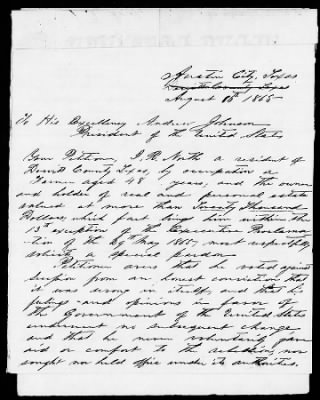 Austin City, Texas
Dewitt County Texas
August 18th 1865
To His Excellency Andrew Johnson
President of the United States
Your Petitioner, J. R. North a resident of
Dewitt County Texas, by occupation a
Farmer aged 48 years, and the owner
and holder of real and personal estate
valued at more than Twenty Thousand
Dollars, which fact brings him within the
13th exception of the Executive Proclama
tion of the 29 May 1865, most respectfully
solicits a special pardon
Petitioner avers that he voted against
secession from an honest conviction that
it was wrong in itself, and that his
feelings and opinions in favor of
the Government of the United States
underwent no subsequent change
and that he never voluntarily gave
aid or comfort to the rebellion, nor
sought nor held office under its authorities.